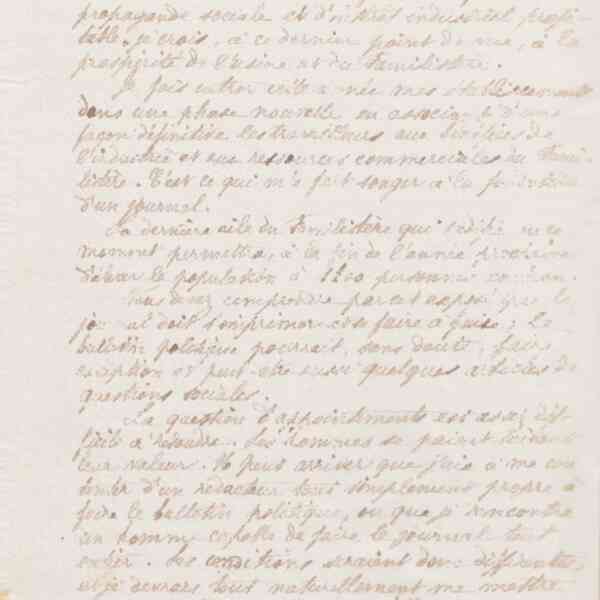 propagande sociale et d'intérêt industriel profi-
table, je crois, à ce dernier point de vue, à la
prospérité de l'usine et du Familistère.
Je fais entrer cette année mes établissements
dans une phase nouvelle en associant d'une
façon définitive les travailleurs aux bénéfices de
l'industrie et aux ressources commerciales du Fami-
listère. C'est ce qui m'a fait songer à la fondation
d'un journal.
La dernière aile du Familistère qui s'édifie en ce
moment permettra, à la fin de l'année prochaine
d'élever la population à 1200 personnes environ.
Vous devez comprendre par cet exposé que le
journal doit s'imprimer et se faire à Guise; le
bulletin politique pourrait, sans doute, faire
exception et peut-être aussi quelques articles de
questions sociales.
La question d'appointements est assez dif-
ficile à résoudre. Les hommes se paient suivant
leur valeur. Il peut arriver que j'aie à me con
tenter d'un rédacteur tout simplement propre à
faire le bulletin politique, ou que je rencontre
un homme capable de faire le journal tout
entier. Les conditions seraient donc différentes,
et je devrais tout naturellement me mettre